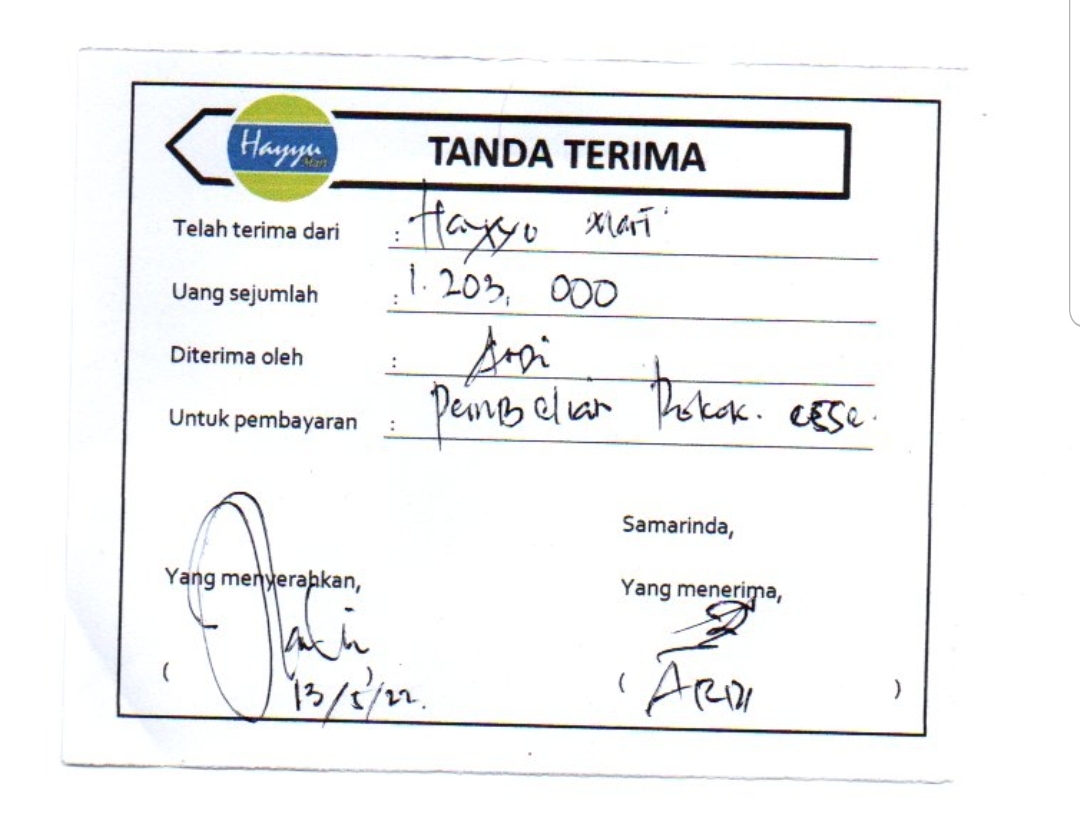 Hayyu
Mart
TANDA TERIMA
Telah terima dari : Hayyu Mart
Uang sejumlah : 1.203.000
Diterima oleh : Ardi
Untuk pembayaran : Pembelian Rokok. esse.
Samarinda,
Yang menyerahkan, Yang menerima,
( ) ( ARDI )
13/5/22.